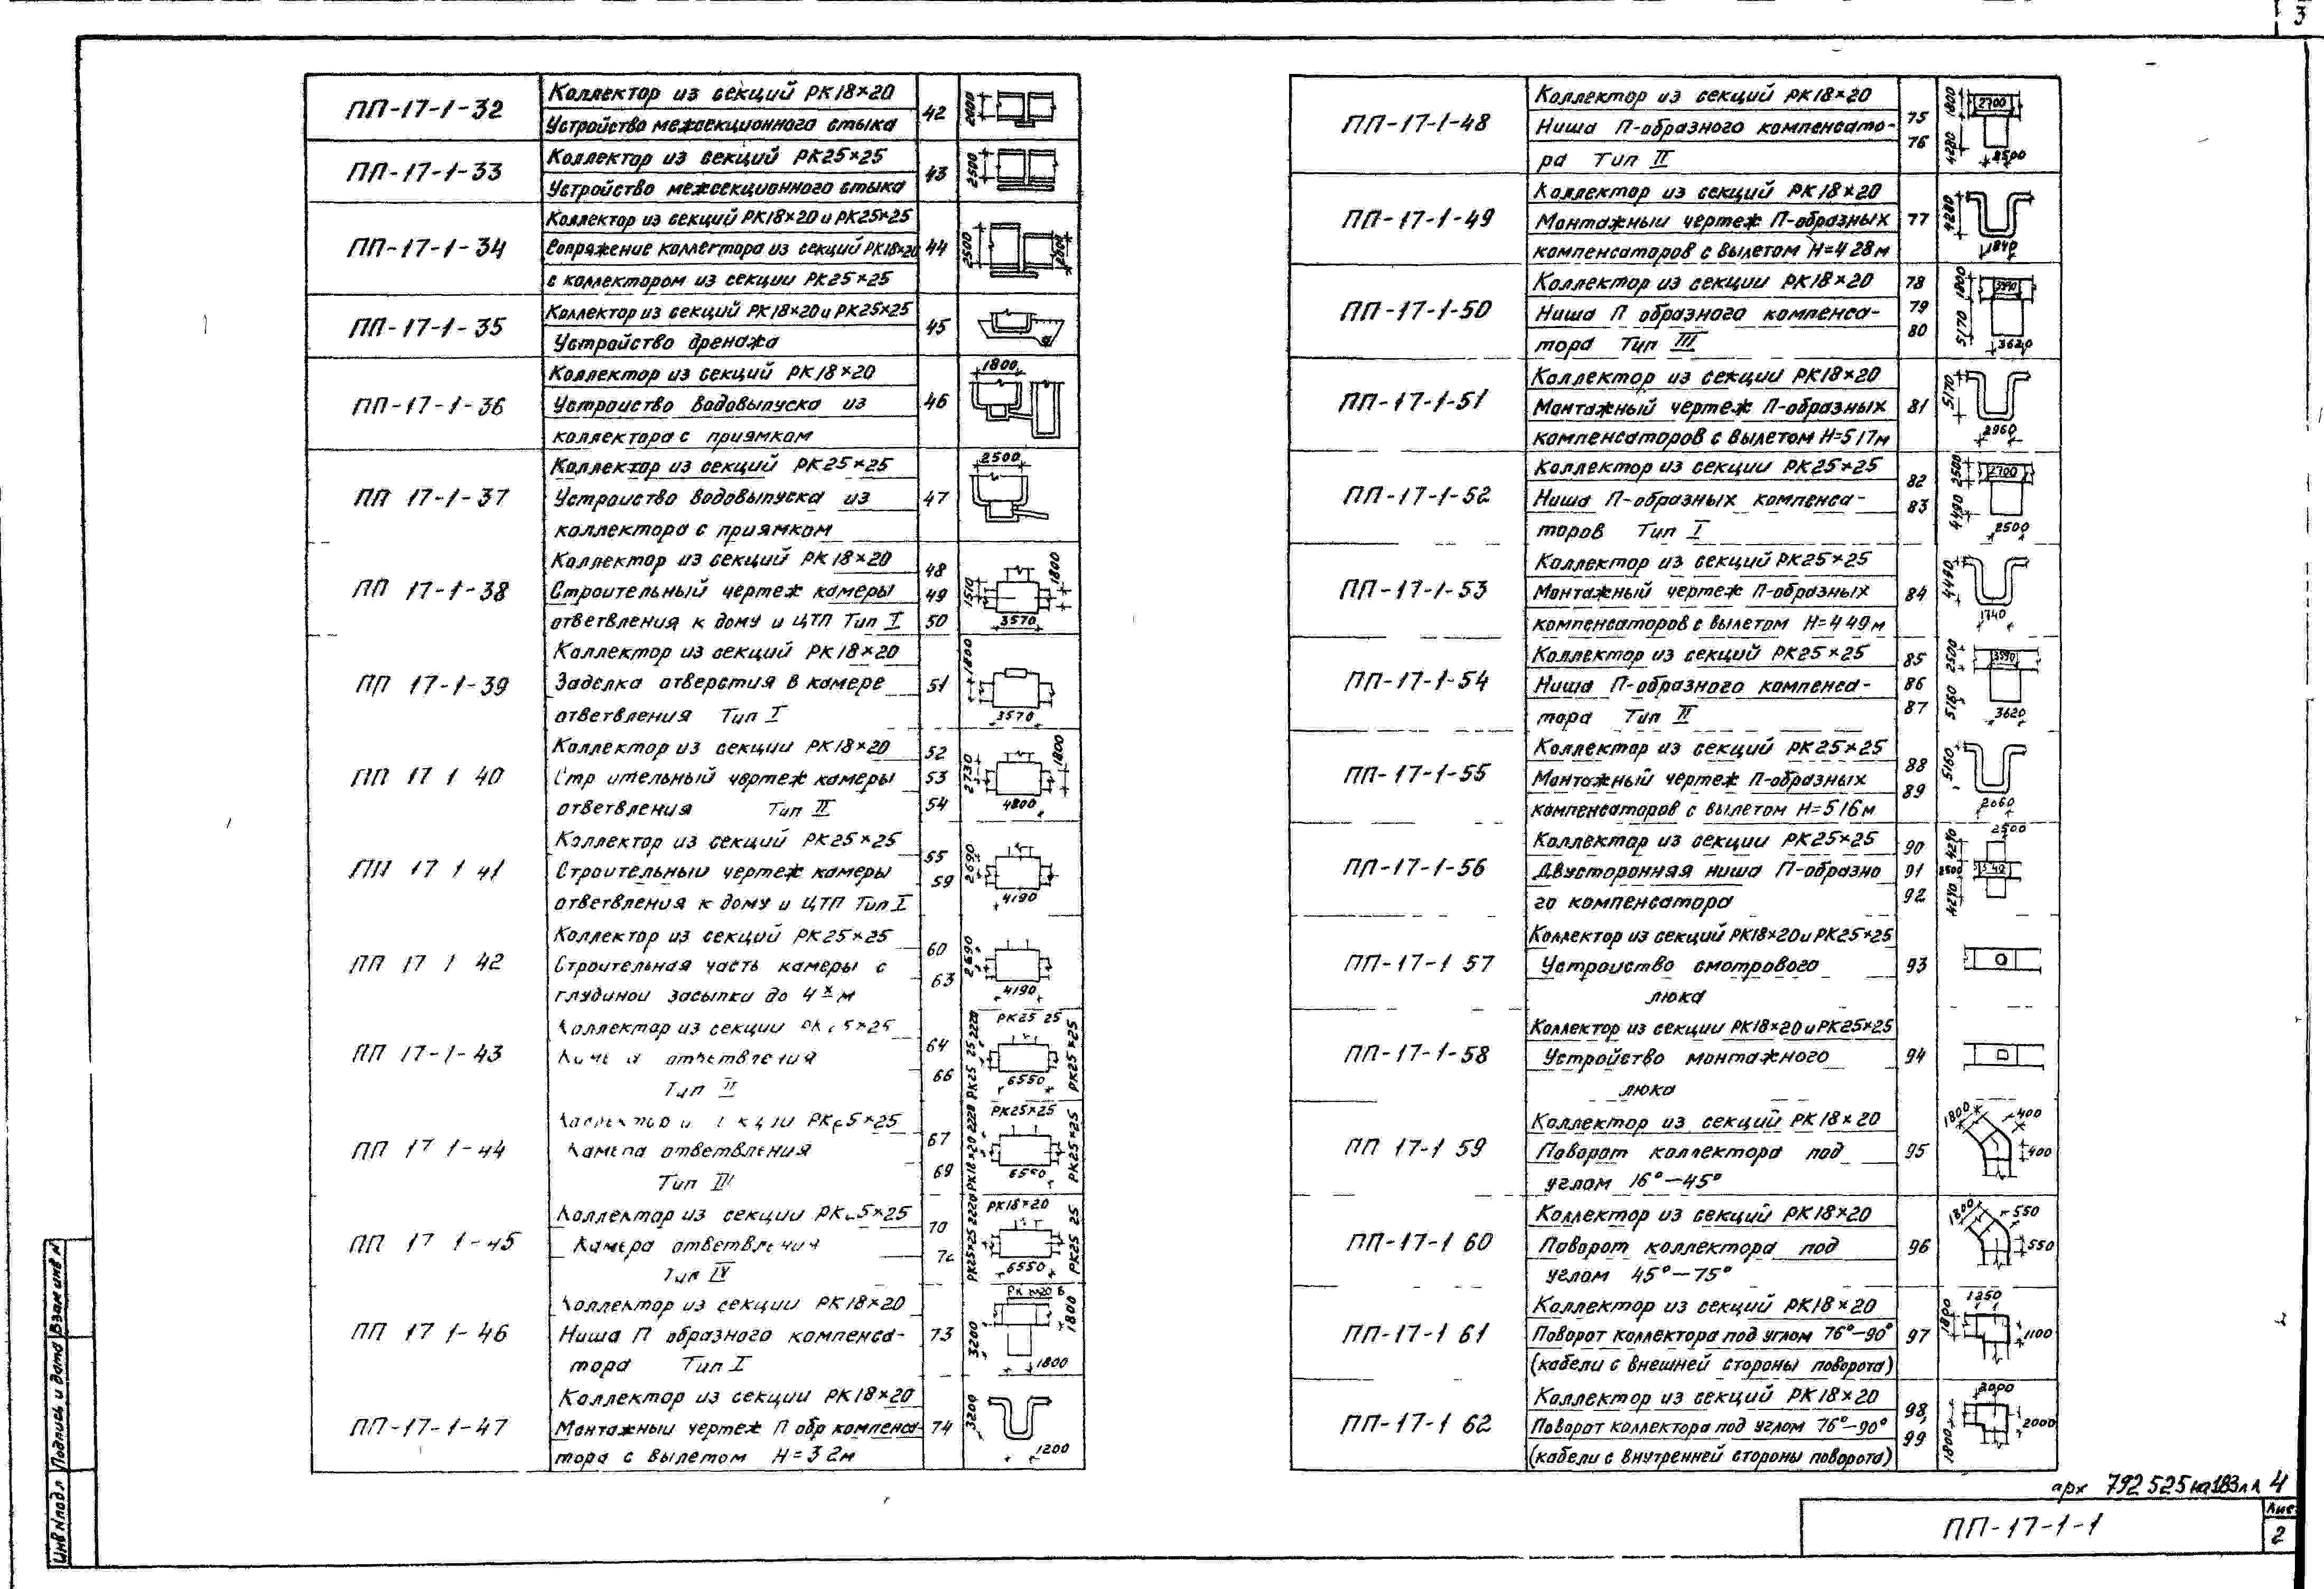 3
ПП-17-1-32
Коллектор из секций РК18×20
Устройство межсекционного стыка
42
2000
ПП-17-1-33
Коллектор из секций РК25×25
Устройство межсекционного стыка
43
2500
ПП-17-1-34
Коллектор из секций РК18×20 и РК25×25
Сопряжение коллектора из секций РК18×20
с коллектором из секции РК25×25
44
2500
2000
ПП-17-1-35
Коллектор из секций РК18×20 и РК25×25
Устройство дренажа
45
ПП-17-1-36
Коллектор из секций РК18×20
Устроиство водовыпуска из
коллектора с приямком
46
1800
ПП 17-1-37
Коллектор из секций РК25×25
Устроиство водовыпуска из
коллектора с приямком
47
2500
ПП 17-1-38
Коллектор из секций РК18×20
Строительный чертеж камеры
ответвления к дому и ЦТП Тип I
48
49
50
1510
1800
3570
ПП 17-1-39
Коллектор из секций РК18×20
Заделка отверстия в камере
ответвления Тип I
51
1800
3570
ПП 17 1 40
Коллектор из секции РК18×20
Стр ительный чертеж камеры
ответвления Тип II
52
53
54
2730
1800
4800
ПП 17 1 41
Коллектор из секций РК25×25
Строительныи чертеж камеры
ответвления к дому и ЦТП Тип I
55
59
2690
4190
ПП 17 1 42
Коллектор из секций РК25×25
Строительная часть камеры с
глудинои засыпки до 4х м
60
63
2690
4190
ПП 17-1-43
оллектор из секции РК 5×25
ответвления
Тип II
64
66
РК25 25 2220
РК25 25
РК25×25
6550
ПП 17 1-44
РК 5×25
Камера ответвления
Тип III
67
69
РК18×20 2220
РК25×25
РК25×25
6550
ПП 17 1-45
Коллектор из секции РК 5×25
Камера ответвления
Тип IV
70
РК25×25 2220
РК18×20
РК25 25
6550
ПП 17 1-46
Коллектор из секции РК18×20
Ниша П образного компенса-
тора Тип I
73
3200
1800
1800
ПП-17-1-47
Коллектор из секции РК18×20
Монтажныи чертеж П обр компенса-
тора с вылетом Н=3 2м
74
3200
1200
ПП-17-1-48
Коллектор из секций РК18×20
Ниша П-образного компенсато-
ра Тип II
75
76
1800
2700
4280
2500
ПП-17-1-49
Коллектор из секций РК18×20
Монтажныи чертеж П-образных
компенсаторов с вылетом Н=4 28м
77
4280
1840
ПП-17-1-50
Коллектор из секций РК18×20
Ниша П образного компенса-
тора Тип III
78
79
80
1800
5170
3620
ПП-17-1-51
Коллектор из секции РК18×20
Монтажный чертеж П-образных
компенсаторов с вылетом Н=5 17м
81
5170
2960
ПП-17-1-52
Коллектор из секции РК25×25
Ниша П-образных компенса-
торов Тип I
82
83
2500
2700
4490
2500
ПП-17-1-53
Коллектор из секций РК25×25
Монтажный чертеж П-образных
компенсаторов с вылетом Н=4 49м
84
4490
1740
ПП-17-1-54
Коллектор из секций РК25×25
Ниша П-образного компенса-
тора Тип II
85
86
87
2500
5160
3620
ПП-17-1-55
Коллектор из секций РК25×25
Монтажный чертеж П-образных
компенсаторов с вылетом Н=5 16м
88
89
5160
2060
ПП-17-1-56
Коллектор из секции РК25×25
Двусторонняя ниша П-образно
го компенсатора
90
91
92
2500
4290
2500
4290
ПП-17-1 57
Коллектор из секций РК18×20 и РК25×25
Устроиство смотрового
люка
93
ПП-17-1-58
Коллектор из секции РК18×20 и РК25×25
Устройство монтажного
люка
94
ПП 17-1 59
Коллектор из секций РК18×20
Поворот коллектора под
углом 16°—45°
95
1800
400
400
ПП-17-1 60
Коллектор из секций РК18×20
Поворот коллектора под
углом 45°—75°
96
1800
550
550
ПП-17-1 61
Коллектор из секций РК18×20
Поворот коллектора под углом 76°—90°
(кабели с внешней стороны поворота)
97
1800
1250
1100
ПП-17-1 62
Коллектор из секций РК18×20
Поворот коллектора под углом 76°—90°
(кабели с внутренней стороны поворота)
98,
99
1800
2000
2000
арх 792 525 на 183 л л 4
ПП-17-1-1
Лис
2
Взам инв N
Подпись и дата
Инв N подл